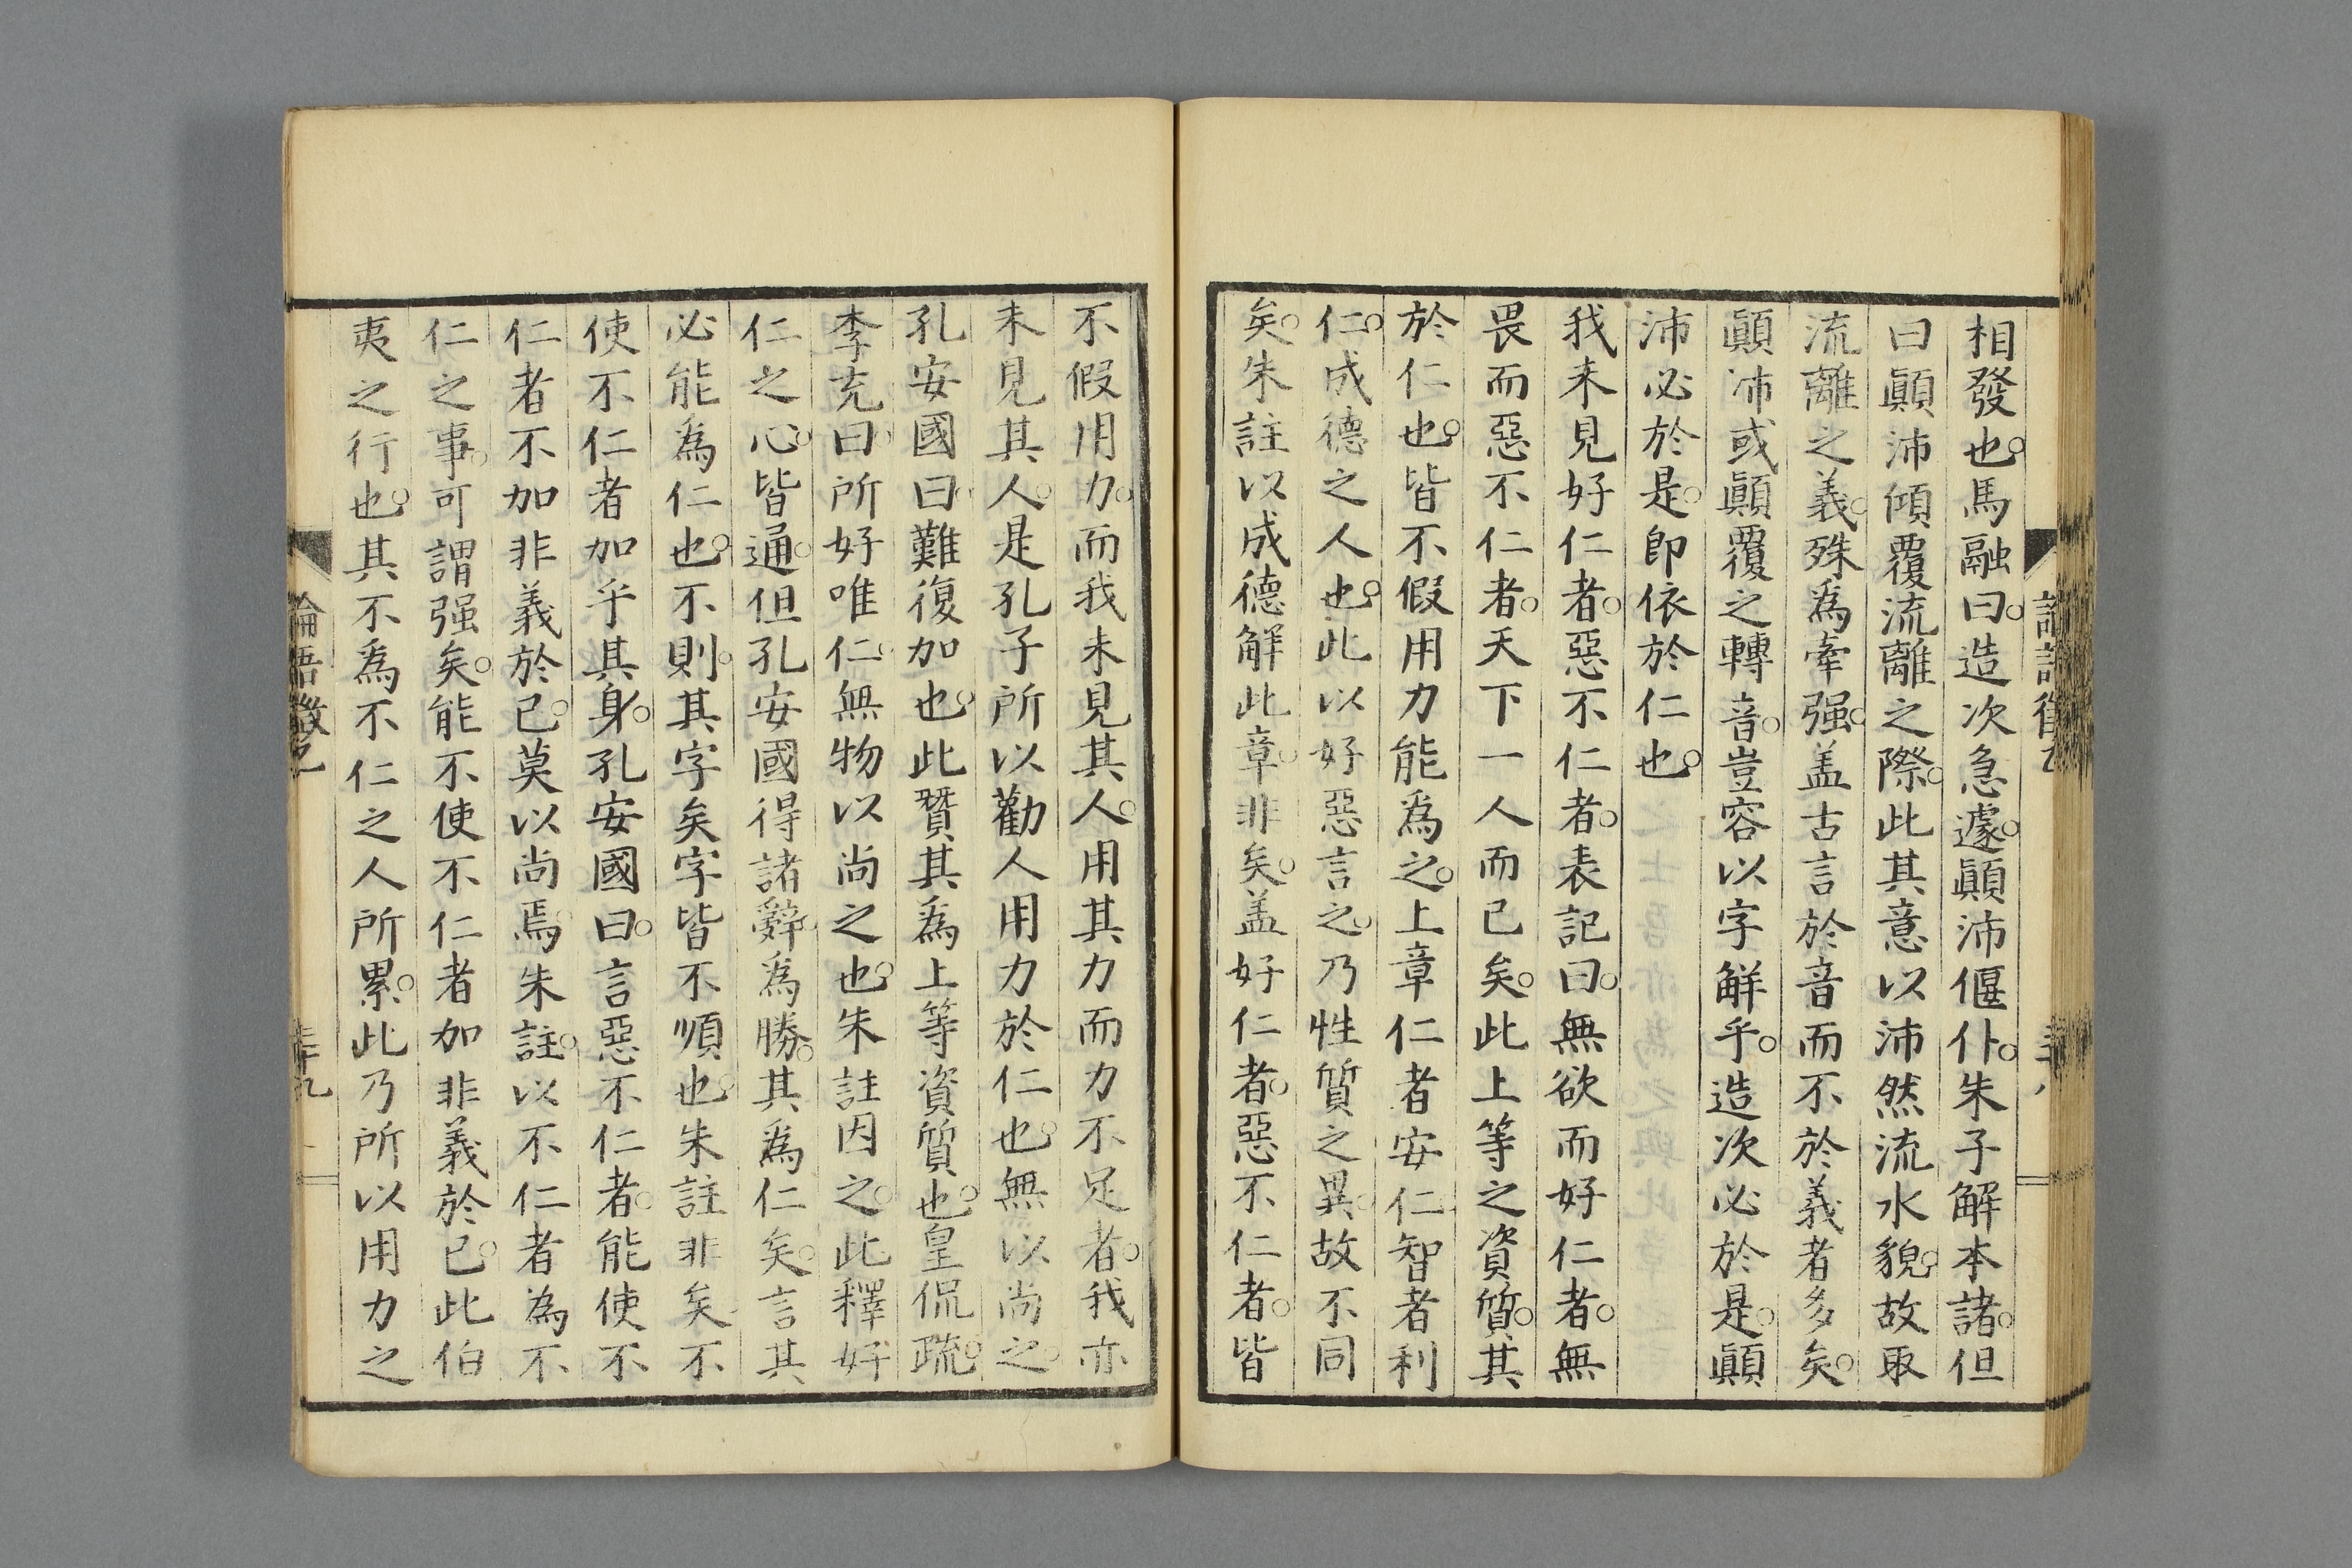 相發也○馬融曰○造次急遽○顚沛偃仆○朱子解本諸○但
曰顚沛傾覆流離之際○此其意以沛然流水貌○故取
流離之義○殊爲牽强○盖古言於音而不於義者多矣○
顚沛或顚覆之轉音○豈容以字解乎○造次必於是○顚
沛必於是○卽依於仁也○
我未見好仁者○惡不仁者○表記曰○無欲而好仁者○無
畏而惡不仁者○天下一人而已矣○此上等之資質○其
於仁也○皆不假用力能爲之○上章仁者安仁智者利
仁○成德之人也○此以好惡言之○乃性質之異○故不同
矣○朱註以成德解此章○非矣○盖好仁者○惡不仁者○皆
不假用力○而我未見其人○用其力而力不足者○我亦
未見其人○是孔子所以勸人用力於仁也○無以尚之○
孔安國曰○難復加也○此贊其爲上等資質也○皇侃疏○
李充曰○所好唯仁○無物以尚之也○朱註因之○此釋好
仁之心○皆通○但孔安國得諸辭爲勝○其爲仁矣○言其
必能爲仁也○不則○其字矣字皆不順也○朱註非矣○不
使不仁者加乎其身○孔安國曰○言惡不仁者○能使不
仁者不加非義於己○莫以尚焉○朱註○以不仁者爲不
仁之事○可謂强矣○能不使不仁者加非義於己○此伯
夷之行也○其不爲不仁之人所累○此乃所以用力之
論語徵乙
三十九